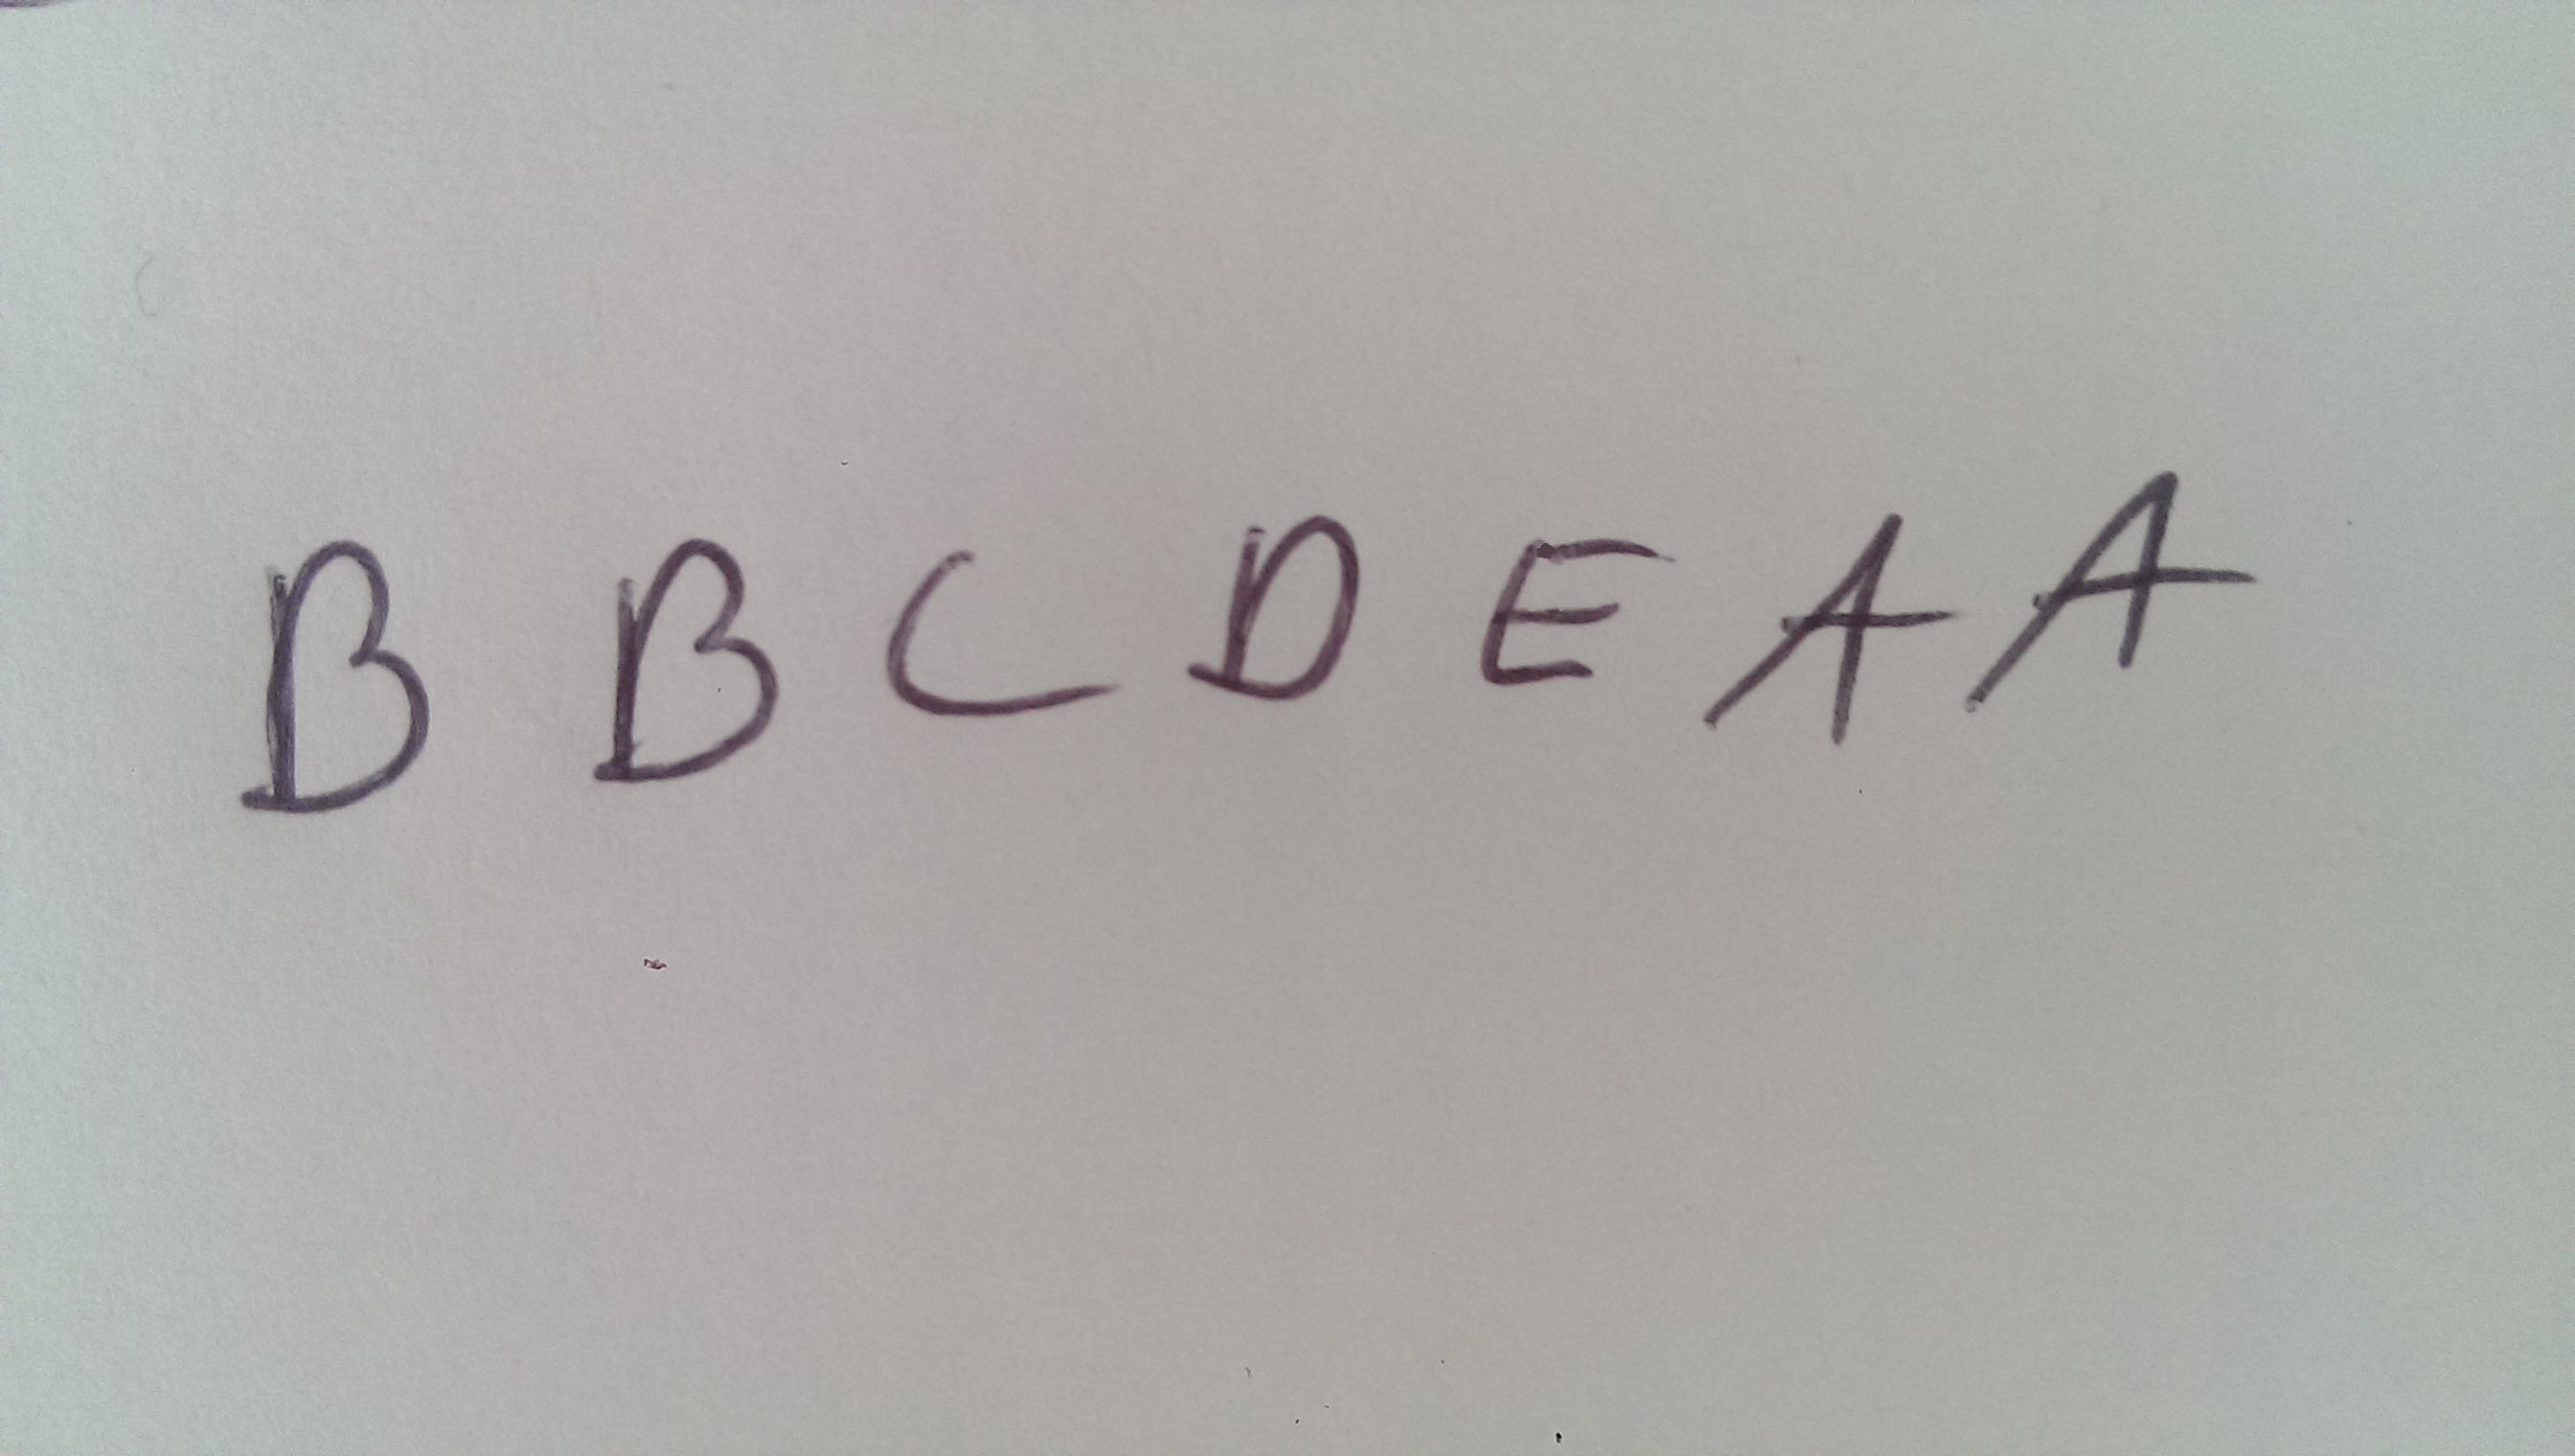 B B C D E A A